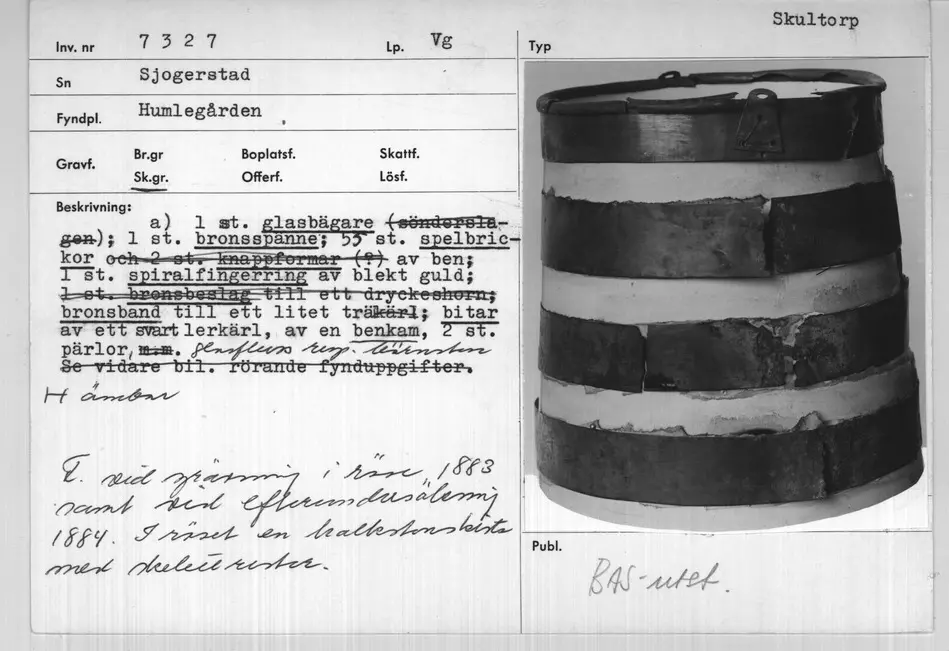 Skultorp
Inv. nr 7 3 2 7 Lp. Vg Typ
Sn Sjogerstad
Fyndpl. Humlegården
Gravf. Br.gr Boplatsf. Skattf.
Sk.gr. Offerf. Lösf.
Beskrivning:
a) 1 st. glasbägare (sönderslа-
gen); 1 st. bronsspänne; 55 st. spelbric-
kor och 2 st. knappformar (?) av ben;
1 st. spiralfingerring av blekt guld;
1 st. bronsbeslag till ett dryckeshorn;
bronsband till ett litet träkärl; bitar
av ett svart lerkärl, av en benkam, 2 st.
pärlor, m.m. glasfluss resp. bärnsten
Se vidare bil. rörande fynduppgifter.
H ämbar
F. vid grävning i röse, 1883
samt vid efterundersökning
1884. I röset en kalkstenskista
med skelettrester.
Publ.
BAS-utst.